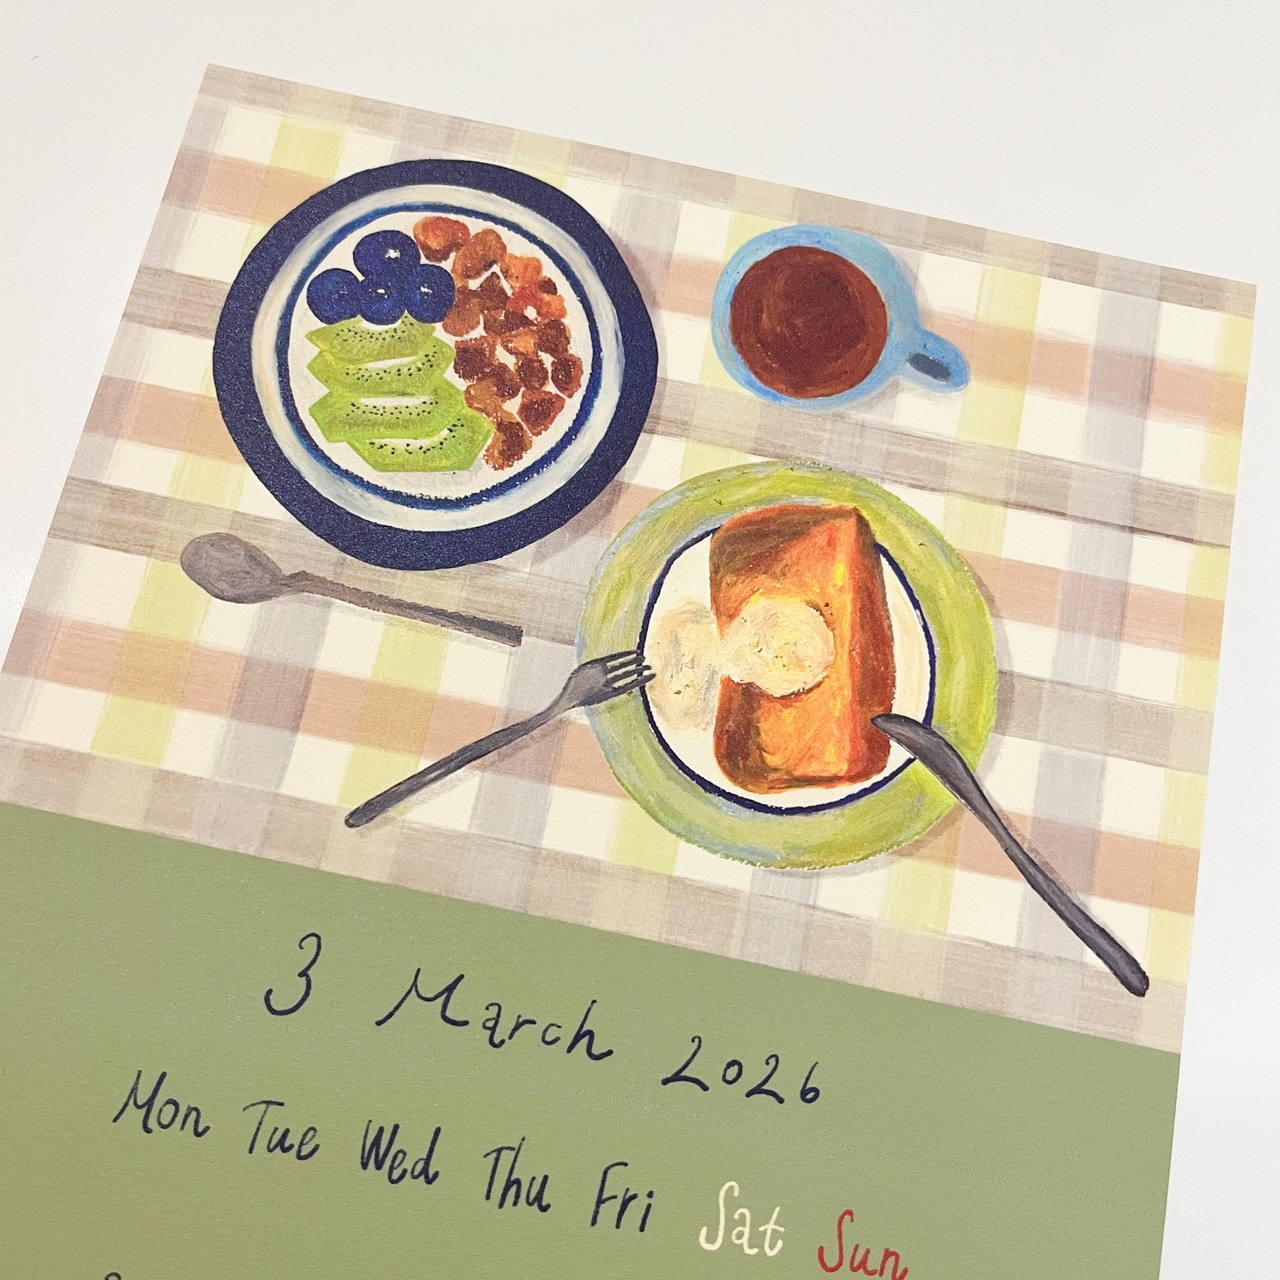 3 March 2026
Mon Tue Wed Thu Fri Sat Sun